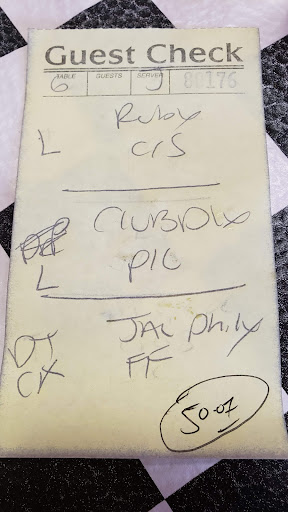 Guest Check
TABLE GUESTS SERVER
6 J 80176
Ruby
L C/S
CLUB DLX
L P/C
DT JAL Phily
CK FF
50.07